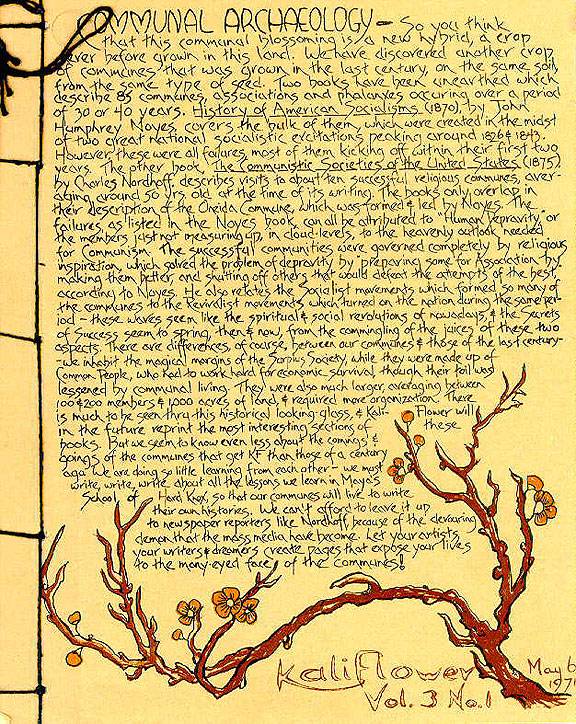 COMMUNAL ARCHAEOLOGY — So you think
that this communal blossoming is a new hybrid, a crop
never before grown in this land. We have discovered another crop
of communes that was grown in the last century, on the same soil,
from the same type of seed. Two books have been unearthed which
describe 85 communes, associations and phalanxes occuring over a period
of 30 or 40 years. History of American Socialisms (1870), by John
Humphrey Noyes, covers the bulk of them, which were created in the midst
of two great national socialistic excitations peaking around 1826 & 1843.
However, these were all failures, most of them kicking off within their first two
years. The other book, The Communistic Societies of the United States (1875)
by Charles Nordhoff, describes visits to about ten successful religious communes, aver-
aging around 50 yrs old at the time of its writing. The books only overlap in
their description of the Oneida Commune, which was formed & led by Noyes. The
failures, as listed in the Noyes book, can all be attributed to "Human Depravity," or
the members just not measuring up, in cloud-levels, to the heavenly outlook needed
for Communism. The successful communities were governed completely by religious
inspiration, which solved the problem of depravity by "preparing some for Association by
making them better, & shutting off others that would defeat the attempts of the best,"
according to Noyes. He also relates the Socialist movements which formed so many of
the communes to the Revivalist movements which turned on the nation during the same per-
iod — these waves seem like the spiritual & social revolutions of nowadays, & the Secrets
of Success seem to spring, then & now, from the commingling of the juices of these two
aspects. There are differences, of course, between our communes & those of the last century-
-we inhabit the magical margins of the Surplus Society, while they were made up of
Common People, who had to work hard for economic survival, though their toil was
lessened by communal living. They were also much larger, averaging between
100 & 200 members & 1,000 acres of land, & required more organization. There
is much to be seen thru this historical looking-glass, & Kali- Flower will
in the future reprint the most interesting sections of these
books. But we seem to know even less about the comings &
goings of the communes that get KF than those of a century
ago. We are doing so little learning from each other — we must
write, write, write about all the lessons we learn in Maya's
School of Hard Knox, so that our communes will live to write
their own histories. We can't afford to leave it up
to newspaper reporters like Nordhoff, because of the devouring
demon that the mass media have become. Let your artists,
your writers & dreamers create pages that expose your lives
to the many-eyed face of the communes!
Kaliflower
Vol. 3 No. 1
May 6
197